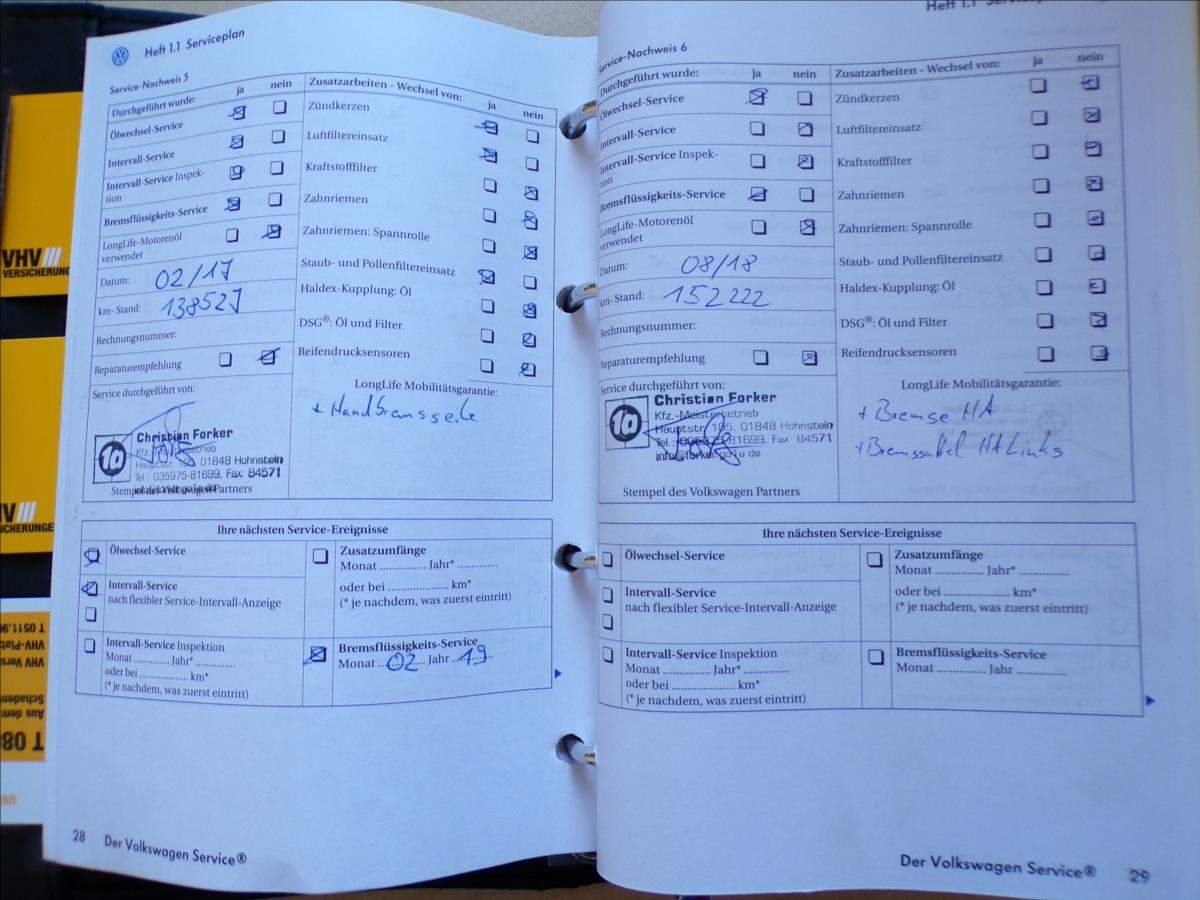 Heft 1.1 Serviceplan
Service-Nachweis 5
Durchgeführt wurde: ja nein
Ölwechsel-Service
Intervall-Service
Intervall-Service Inspek-
tion
Bremsflüssigkeits-Service
LongLife-Motorenöl
verwendet
Datum: 02/17
km-Stand: 138527
Rechnungsnummer:
Reparaturempfehlung
Service durchgeführt von:
1a
Christian Forker
Kfz.-Meisterbetrieb
Hauptstr. 105, 01848 Hohnstein
Tel.: 035975-81699, Fax: 84571
Stempel des Volkswagen Partners
Zusatzarbeiten - Wechsel von: ja nein
Zündkerzen
Luftfiltereinsatz
Kraftstofffilter
Zahnriemen
Zahnriemen: Spannrolle
Staub- und Pollenfiltereinsatz
Haldex-Kupplung: Öl
DSG®: Öl und Filter
Reifendrucksensoren
LongLife Mobilitätsgarantie:
+ Handbremsseile
Ihre nächsten Service-Ereignisse
Ölwechsel-Service
Intervall-Service
nach flexibler Service-Intervall-Anzeige
Intervall-Service Inspektion
Monat ............ Jahr* ............
oder bei .................... km*
(* je nachdem, was zuerst eintritt)
Zusatzumfänge
Monat .............. Jahr* ............
oder bei .................... km*
(* je nachdem, was zuerst eintritt)
Bremsflüssigkeits-Service
Monat ...02... Jahr ..19......
28 Der Volkswagen Service®
Heft 1.1
Service-Nachweis 6
Durchgeführt wurde: ja nein
Ölwechsel-Service
Intervall-Service
Intervall-Service Inspek-
tion
Bremsflüssigkeits-Service
LongLife-Motorenöl
verwendet
Datum: 08/18
km-Stand: 152222
Rechnungsnummer:
Reparaturempfehlung
Service durchgeführt von:
1a
Christian Forker
Kfz.-Meisterbetrieb
Hauptstr. 105, 01848 Hohnstein
Tel.: 035975-81699, Fax: 84571
Stempel des Volkswagen Partners
Zusatzarbeiten - Wechsel von: ja nein
Zündkerzen
Luftfiltereinsatz
Kraftstofffilter
Zahnriemen
Zahnriemen: Spannrolle
Staub- und Pollenfiltereinsatz
Haldex-Kupplung: Öl
DSG®: Öl und Filter
Reifendrucksensoren
LongLife Mobilitätsgarantie:
+ Bremse HA
+ Bremssattel HA Links
Ihre nächsten Service-Ereignisse
Ölwechsel-Service
Intervall-Service
nach flexibler Service-Intervall-Anzeige
Intervall-Service Inspektion
Monat .............. Jahr* ..............
oder bei .................... km*
(* je nachdem, was zuerst eintritt)
Zusatzumfänge
Monat .............. Jahr* ..............
oder bei .................... km*
(* je nachdem, was zuerst eintritt)
Bremsflüssigkeits-Service
Monat .............. Jahr ..............
Der Volkswagen Service® 29
VHV
VERSICHERUNG
CHERUNGE
T 0511.9
VHV-Platz
VHV Vers
Schaden
Aus dem
T 080